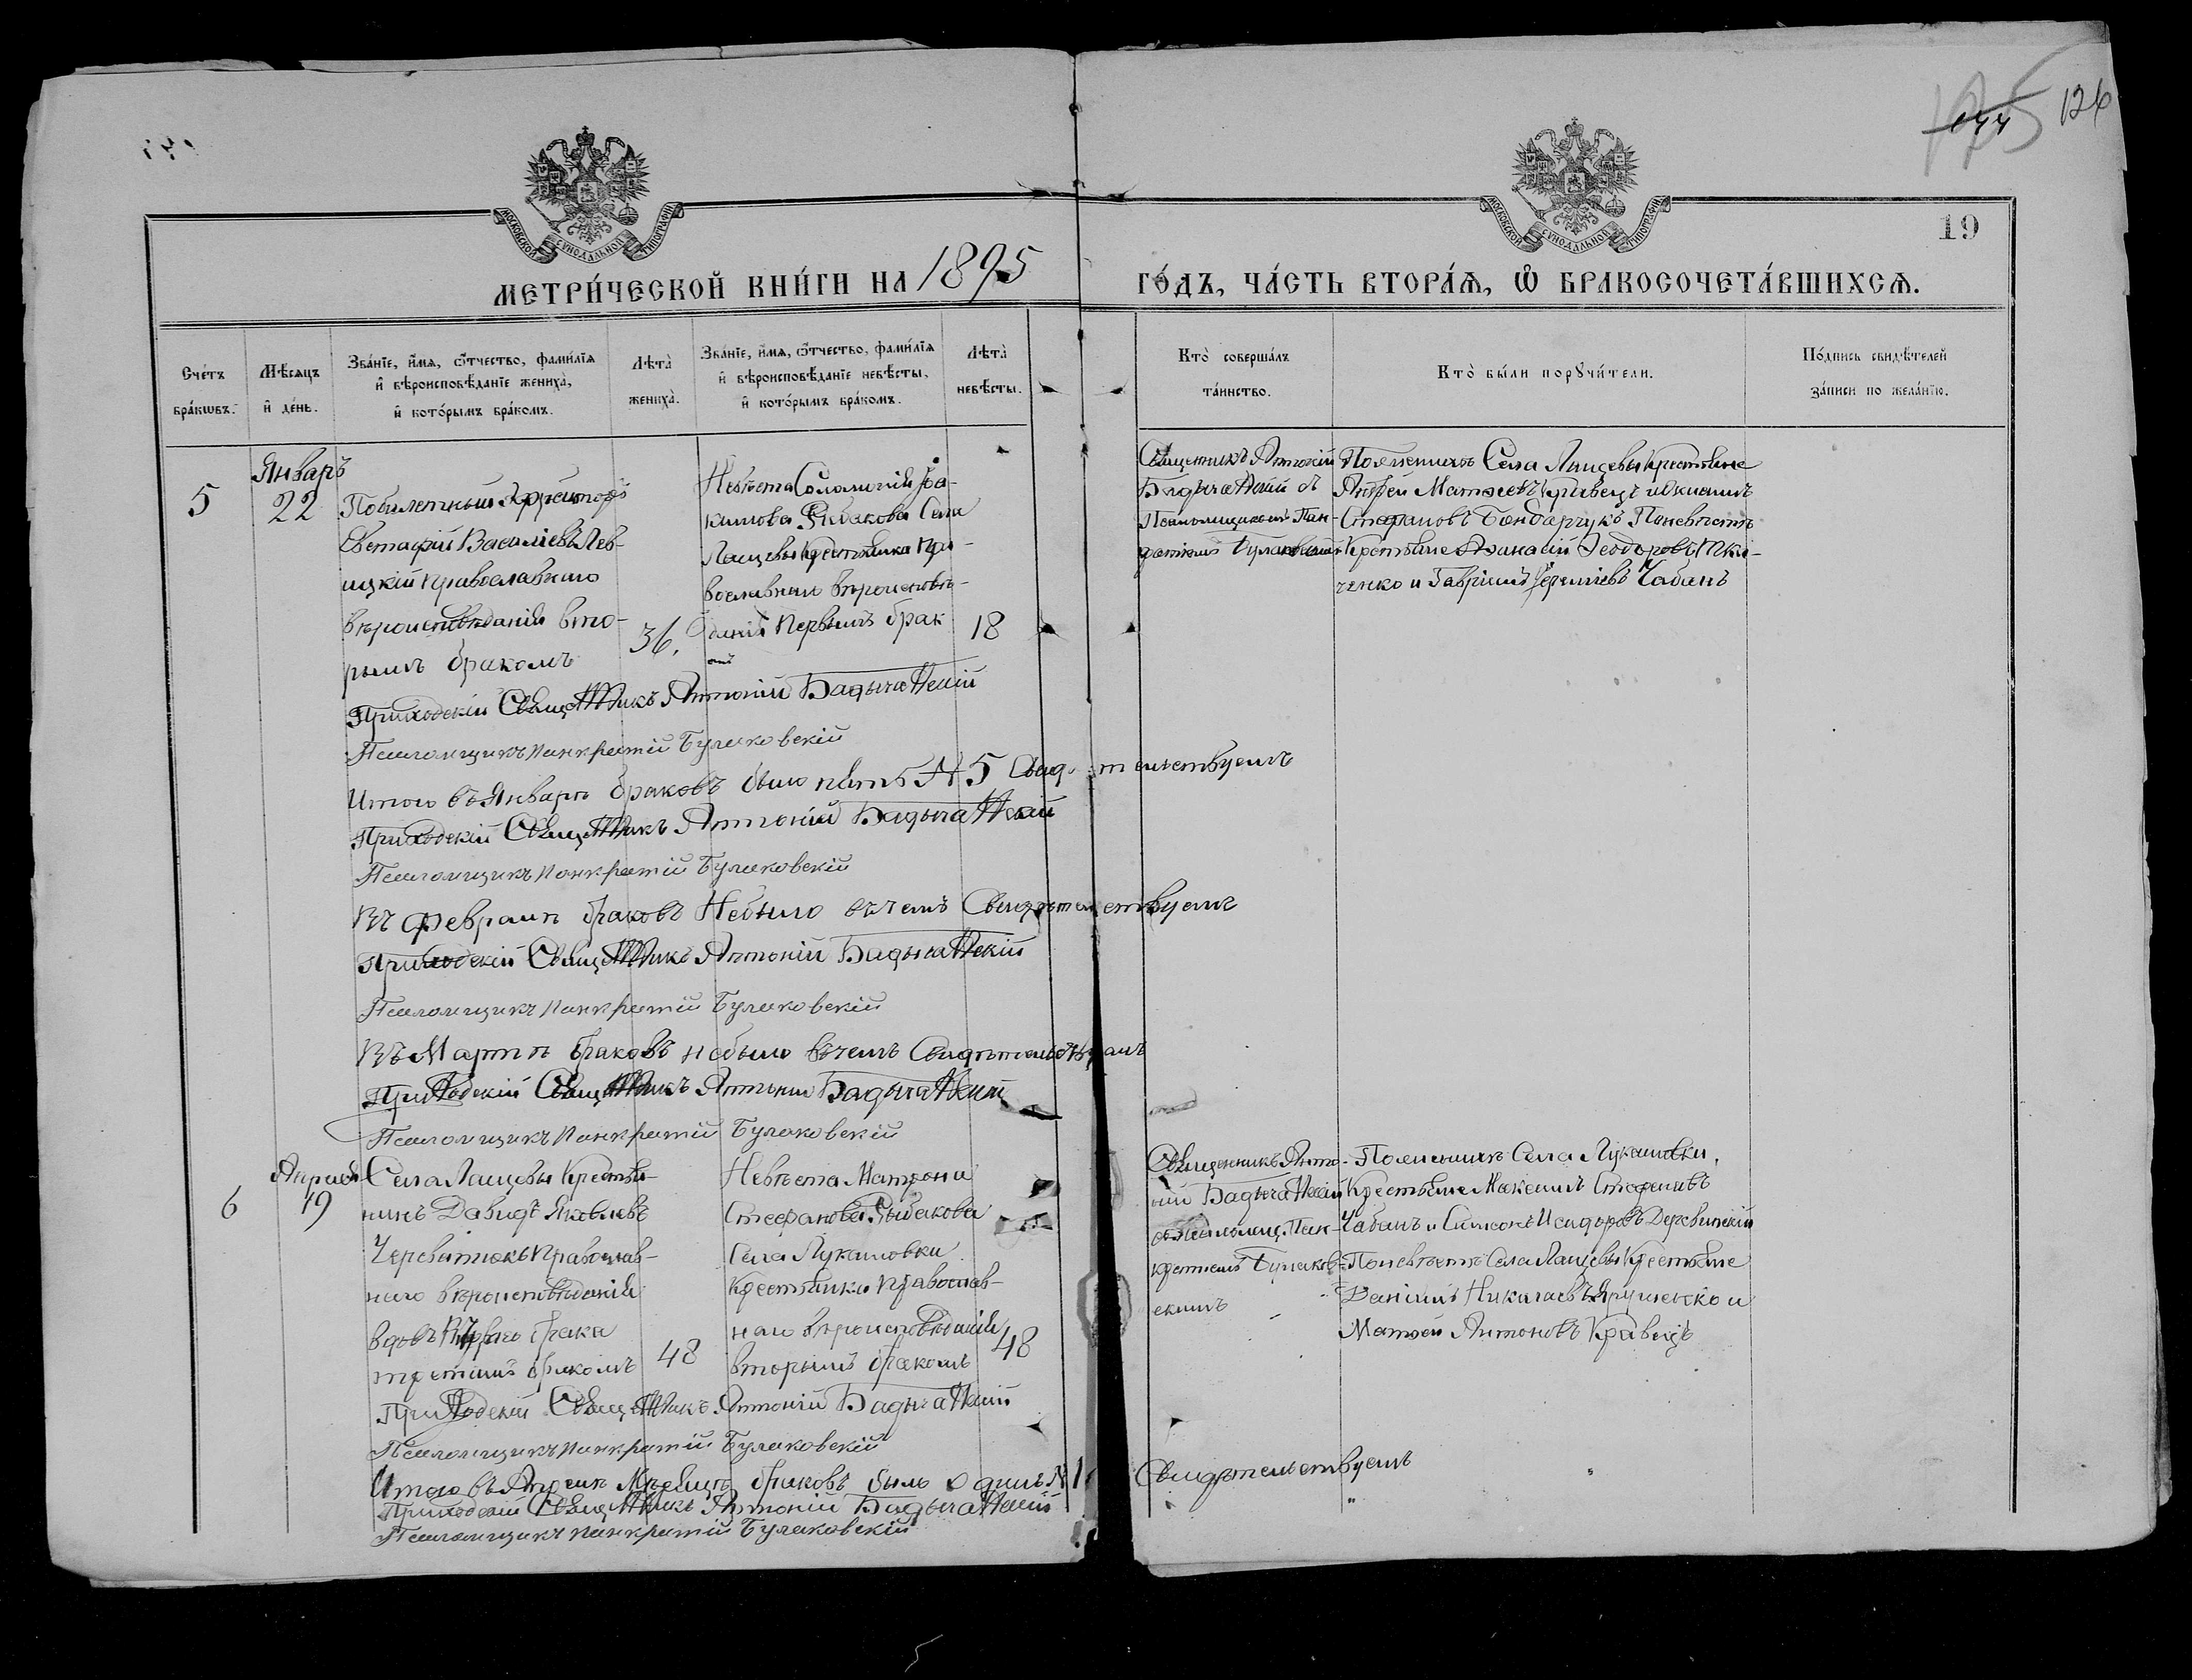 126
19
МОСКОВСКОЙ СѴНОДАЛЬНОЙ ТИПОГРАФІИ
МОСКОВСКОЙ СѴНОДАЛЬНОЙ ТИПОГРАФІИ
МЕТРИ́ЧЕСКОЙ КНИ́ГИ НА 1895
ГО́ДЪ, ЧА́СТЬ ВТОРА́Ѧ, Ѡ҆ БРАКОСОЧЕТА́ВШИХСѦ.
Сче́тъ
бра́кѡвъ.
Мѣ́сѧцъ
и҆ де́нь.
Зва́нїе, и҆́мѧ, ѻ҆́тчество, фами́лїѧ
и҆ вѣроисповѣ́данїе жениха̀,
и҆ кото́рымъ бра́комъ.
Лѣта̀
жениха̀.
Зва́нїе, и҆́мѧ, ѻ҆́тчество, фами́лїѧ
и҆ вѣроисповѣ́данїе невѣ́сты,
и҆ кото́рымъ бра́комъ.
Лѣта̀
невѣ́сты.
Кто̀ соверша́лъ
та́инство.
Кто̀ бы́ли порꙋчи́тели.
По́дпись свидѣ́телей
за́писи по жела́нїю.
5
Январь
22
Побилетный Эфрейторъ
Евстафій Василіевъ Лев-
ицкій православнаго
вѣроисповѣданія вто-
рымъ бракомъ
36.
Невѣста Соломонія Іоа-
кимова Рыбакова Села
Лащевы Крестьянка пра-
вославнаго вѣроисповѣ-
данія первымъ брак
омъ
18
Священникъ Антоній
съ
Псаломщикомъ Пан-
кратіемъ Булаковскимъ
По женихѣ Села Лащевы Крестьяне
Андрей Матѳеевъ Кравецъ и
Стефановъ Бондарчукъ По невѣстѣ
Крестьяне Аѳанасій Ѳеодоровъ
ченко и Гавріилъ Чабанъ
Приходскій Священникъ Антоній
Псаломщикъ Панкратій Булаковскій
Итого въ Январѣ браковъ было пять № 5 Свидѣтельствуемъ
Приходскій Священникъ Антоній
Псаломщикъ Панкратій Булаковскій
Въ Февралѣ браковъ Небыло вчемъ Свидѣтельствуемъ
Приходскій Священникъ Антоній
Псаломщикъ Панкратій Булаковскій
Въ Мартѣ браковъ небыло вчемъ Свидѣтельствуемъ
Приходскій Священникъ Антоній
Псаломщикъ Панкратій Булаковскій
6
Апрѣля
19
Села Лащевы Крестья-
нинъ Давидъ Яковлевъ
Череватюкъ Православ-
наго вѣроисповѣданія
брака
третимъ бракомъ
48
Невѣста Матрона
Стефанова Рыбакова
Села Лукашовки
Крестьянка Православ-
наго вѣроисповѣданія
вторымъ бракомъ
48
Священникъ Анто-
ній
съ Псаломщ. Пан-
кратіемъ Булаков-
скимъ
По женихѣ Села Лукашовки
Крестьяне Максимъ Стефановъ
Чабанъ и Симеонъ Исидоровъ Деревинскій
По невѣстѣ Села Лащевы Крестьяне
Даніилъ Николаевъ и
Матѳей Антоновъ Кравецъ
Приходскій Священникъ Антоній
Псаломщикъ Панкратій Булаковскій
Итого въ Апрѣлѣ Мѣсяцѣ браковъ былъ одинъ № 1 Свидѣтельствуемъ
Приходскій Священникъ Антоній
Псаломщикъ Панкратій Булаковскій